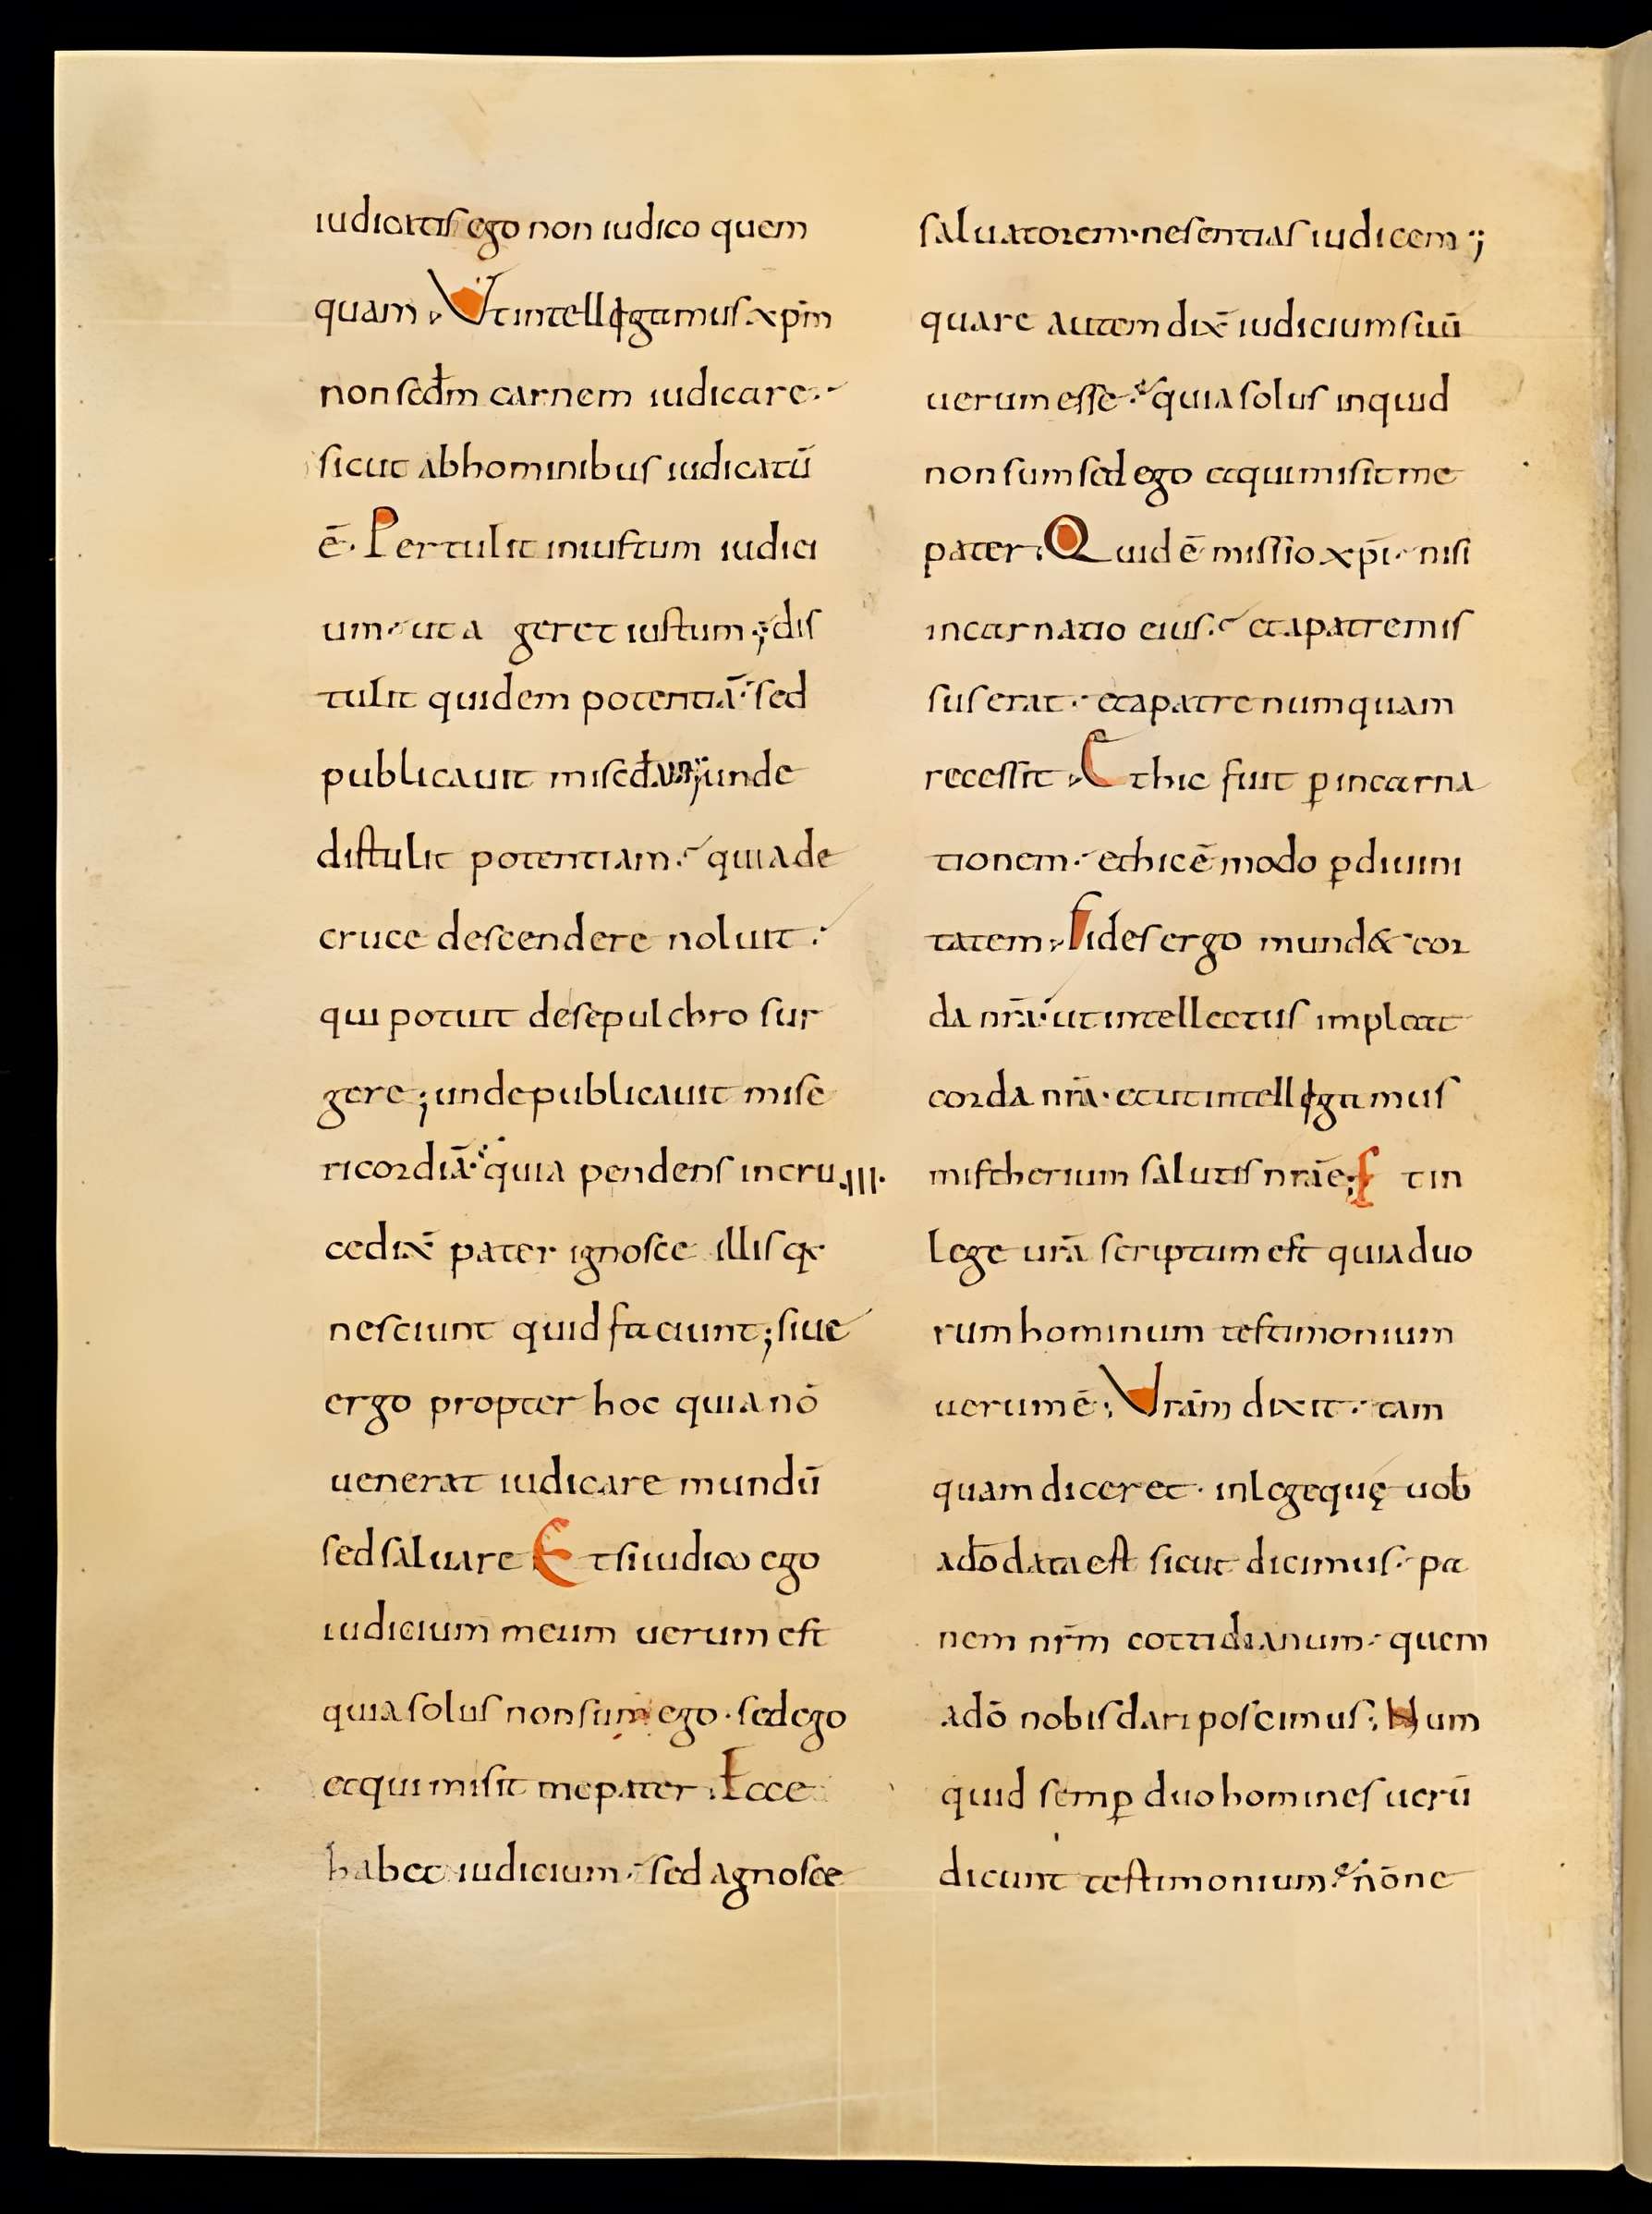 iudicatis ego non iudico quem
quam. Ut intellegamus xp̄m
non scd̄m carnem iudicare.
sicut ab hominibus iudicatū
ē. Pertulit iniustum iudici
um. ut a geret iustum; dis
tulit quidem potentiā. sed
publicauit miscd̄am; unde
distulit potentiam. quia de
cruce descendere noluit.
qui potuit de sepulchro sur
gere; unde publicauit mise
ricordiā. quia pendens in cru
ce dix̄ pater ignosce illis q̄
nesciunt quid faciunt; siue
ergo propter hoc quia nō
uenerat iudicare mundū
sed saluare Et si iudico ego
iudicium meum uerum est
quia solus non sum ego. sed ego
et qui misit me pater. Ecce
habet iudicium. sed agnosce
.III.
saluatorem. ne sentias iudicem;
quare autem dix̄ iudicium suū
uerum esse. quia solus inquid
non sum sed ego et qui misit me
pater. Quid ē missio xp̄i. nisi
incarnatio eius. et a patre mis
sus erat. et a patre numquam
recessit. Et hic fuit ꝑ incarna
tionem. et hic ē modo ꝑ diuini
tatem. Fides ergo mund& cor
da nr̄a. ut intellectus impleat
corda nr̄a. et ut intellegamus
mistherium salutis nr̄ae; Et in
lege ur̄a scriptum est quia duo
rum hominum testimonium
uerum ē; Ur̄am dixit. tam
quam diceret. in lege quę uob
a dō data est sicut dicimus. pa
nem nr̄m cottidianum. quem
a dō nobis dari poscimus; Num
quid semꝑ duo homines uerū
dicunt testimonium. nōne